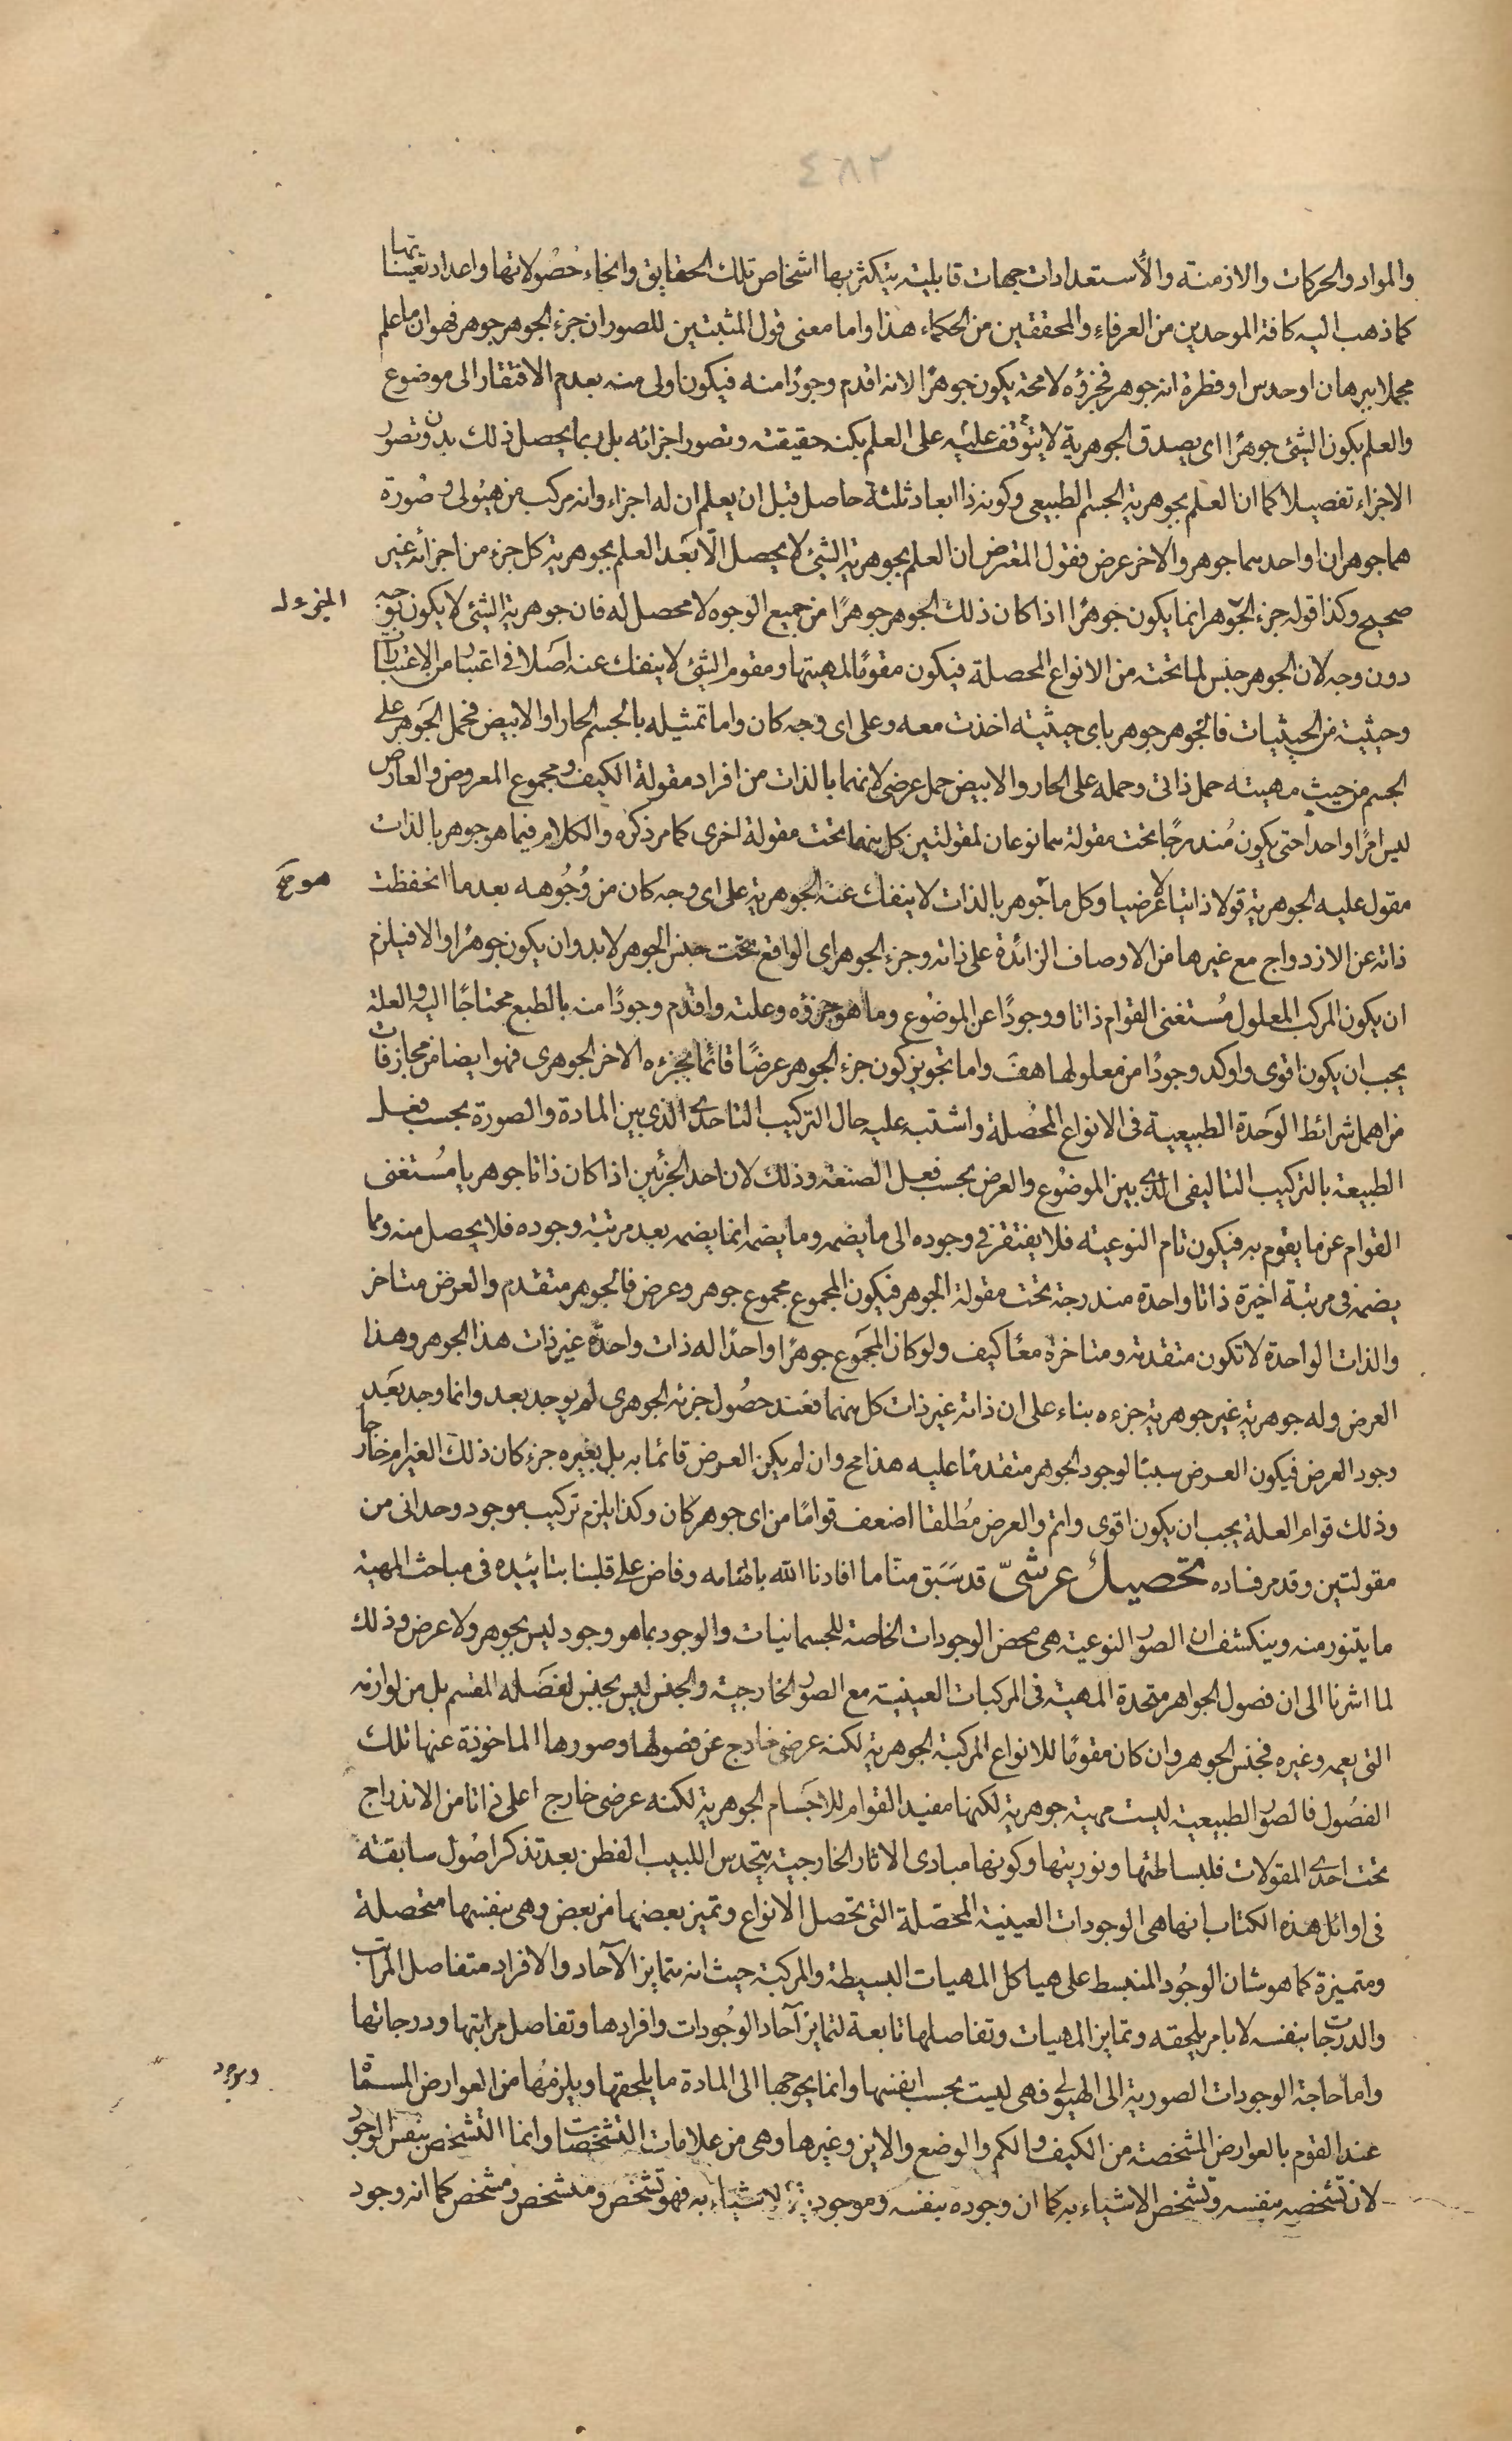 ٤٨٢
والمواد والحركات والازمنة والأستعدادات جهات قابلية يتكثر بها اشخاص تلك الحقايق وانحاء حصولاتها واعداد تعيناتها
كما ذهب اليه كافة الموحدين من العرفاء والمحققين من الحكماء هذا واما معنى قول المثبتين للصور ان جزء الجوهر جوهر فهو ان ما علم
مجملا ببرهان او حدس او فطرة انه جوهر فجزؤه لا محة يكون جوهرًا لانه اقدم وجودًا منه فيكون اولى منه بعدم الافتقار الى موضوع
والعلم بكون الشئ جوهرًا اى يصدق الجوهرية لا يتوقف عليه على العلم بكنه حقيقته وتصور اجزائه بل ربما يحصل ذلك بدون تصور
الاجزاء تفصيلا كما ان العلم بجوهرية الجسم الطبيعى وكونه ذا ابعاد ثلثة حاصل قبل ان يعلم ان له اجزاء وانه مركب من هيولى وصورة
هما جوهران او احدهما جوهر والاخر عرض فقول المعترض ان العلم بجوهرية الشئ لا يحصل الّا بعد العلم بجوهرية كل جزء من اجزائه غير
صحيح وكذا قوله جزء الجوهر انما يكون جوهرًا اذا كان ذلك الجوهر جوهرًا من جميع الوجوه لا محصل له فان جوهرية الشئ لا يكون بوجه
دون وجه لان الجوهر جنس لما تحته من الانواع المحصلة فيكون مقومًا لمهيتها ومقوم الشئ لا ينفك عنه اصلا فى اعتبار من الاعتبارات
وحيثية من الحيثيات فالجوهر جوهر باى حيثية اخذت معه وعلى اى وجه كان واما تمثيله بالجسم الحار او الابيض فحمل الجوهر على
الجسم من حيث مهيته حمل ذاتى وحمله على الحار والابيض حمل عرضى لانهما بالذات من افراد مقولة الكيف ومجموع المعروض والعارض
ليس امرًا واحدا حتى يكون مندرجًا تحت مقولة هما نوعان لمقولتين كل منهما تحت مقولة اخرى كما مر ذكره والكلام فيما هو جوهر بالذات
مقول عليه الجوهرية قولا ذاتيا لا عرضيا وكل ما جوهر بالذات لا ينفك عنه الجوهرية على اى وجه كان من وجوهه بعد ما انحفظت
ذاته عن الازدواج مع غيرها من الاوصاف الزائدة على ذاته وجزء الجوهر اى الواقع تحت جنس الجوهر لا بد وان يكون جوهرًا والا فيلزم
ان يكون المركب المعلول مستغنى القوام ذاتا ووجودًا عن الموضوع وما هو جزؤه وعلته واقدم وجودًا منه بالطبع محتاجًا اليه والعلة
يجب ان يكون اقوى واوكد وجودًا من معلولها هف واما تجويز كون جزء الجوهر عرضًا قائمًا بجزءه الاخر الجوهرى فهو ايضا من مجازفات
من اهمل شرائط الوحدة الطبيعية فى الانواع المحصلة واشتبه عليه حال التركيب الاتحادى الذى بين المادة والصورة بحسب فعل
الطبيعة بالتركيب التاليفى الذى بين الموضوع والعرض بحسب فعل الصنعة وذلك لان احد الجزئين اذا كان ذاتا جوهريا مستغنى
القوام عن ما يقوم به فيكون تام النوعية فلا يفتقر فى وجوده الى ما يضمه وما يضمه انما يضمه بعد مرتبة وجوده فلا يحصل منه ومما
يضمه فى مرتبة اخيرة ذاتا واحدة مندرجة تحت مقولة الجوهر فيكون المجموع مجموع جوهر وعرض فالجوهر متقدم والعرض متاخر
والذات الواحدة لا تكون متقدمة ومتاخرة معًا كيف ولو كان المجموع جوهرًا واحدًا له ذات واحدة غير ذات هذا الجوهر وهذا
العرض وله جوهرية غير جوهرية جزءه بناء على ان ذاته غير ذات كل منهما فعند حصول جزئه الجوهرى لم يوجد بعد وانما وجد بعد
وجود العرض فيكون العرض سببًا لوجود الجوهر متقدمًا عليه هذا مح وان لم يكن العرض قائما به بل بغيره جزء كان ذلك الغير ام خارجا
وذلك قوام العلة يجب ان يكون اقوى واتم والعرض مطلقا اضعف قوامًا من اى جوهر كان وكذا يلزم تركيب موجود وحدانى من
مقولتين وقد مر فساده تحصيل عرشىّ قد سبق منّا ما افادنا الله بالهامه وفاض على قلبنا بتائيده فى مباحث المهية
ما يتنور منه وينكشف ان الصور النوعية هى محض الوجودات الخاصة للجسمانيات والوجود بما هو وجود ليس بجوهر ولا عرض وذلك
لما اشرنا الى ان فصول الجواهر متحدة المهية فى المركبات العينية مع الصور الخارجية والجنس ليس بجنس لفصله المقسم بل من لوازمه
التى يعمه وغيره فجنس الجوهر وان كان مقومًا للانواع المركبة الجوهرية لكنه عرضى خارج عن فصولها وصورها الماخوذة عنها تلك
الفصول فالصور الطبيعية ليست مهية جوهرية لكنها مفيد القوام للاجسام الجوهرية لكنه عرضى خارج اعلى ذاتا من الاندراج
تحت احدى المقولات فلبساطتها ونوريتها وكونها مبادى الاثار الخارجية يتحدس اللبيب الفطن بعد تذكر اصول سابقة
فى اوائل هذه الكتاب انها هى الوجودات العينية المحصّلة التى تحصل الانواع وتميز بعضها من بعض وهى بنفسها متحصلة
ومتميزة كما هو شان الوجود المنبسط على هياكل المهيات البسيطة والمركبة حيث انه متمايز الآحاد والافراد متفاصل المراتب
والدرجات بنفسه لا بامر يلحقه وتمايز المهيات وتفاصلها تابعة لتمايز آحاد الوجودات وافرادها وتفاصل مراتبها ودرجاتها
واما حاجة الوجودات الصورية الى الهيولى فهى ليست بحسب انفسها وانما يحوجها الى المادة ما يلحقها ويلزمها من العوارض المسماة
عند القوم بالعوارض المشخصة من الكيف والكم والوضع والاين وغيرها وهى من علامات التشخصات وانما التشخص بنفس الوجود
لان تشخصه بنفسه وتشخص الاشياء به كما ان وجوده بنفسه وموجود الاشياء به فهو تشخص ومتشخص ومشخص كما انه وجود
وموجود